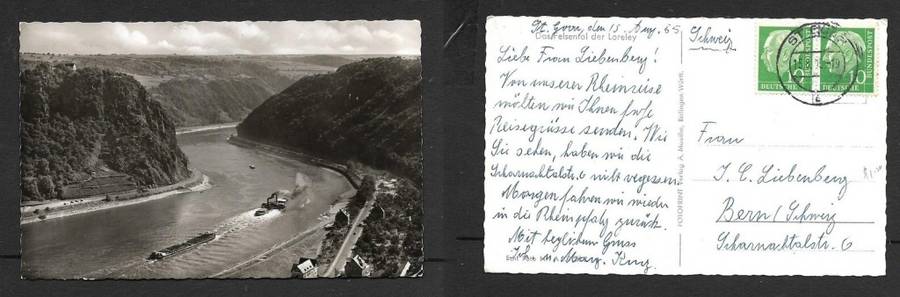 St. Goar, den 15. Aug. 55
Das Felsental der Loreley
Schweiz
Liebe Frau Liebenberg!
Von unserer Rheinreise
möchten wir Ihnen
Reisegrüsse senden! Wie
Sie sehen, haben wir die
Scharnachtalstr. 6 nicht vergessen.
Morgen fahren wir wieder
in die Rheinpfalz zurück.
Mit herzlichem Gruss
FOTOPRINT Verlag A. Mueller, Esslingen Württ.
DEUTSCHE BUNDESPOST
10
DEUTSCHE BUNDESPOST
10
Frau
Liebenberg
Bern/Schweiz
Scharnachtalstr. 6